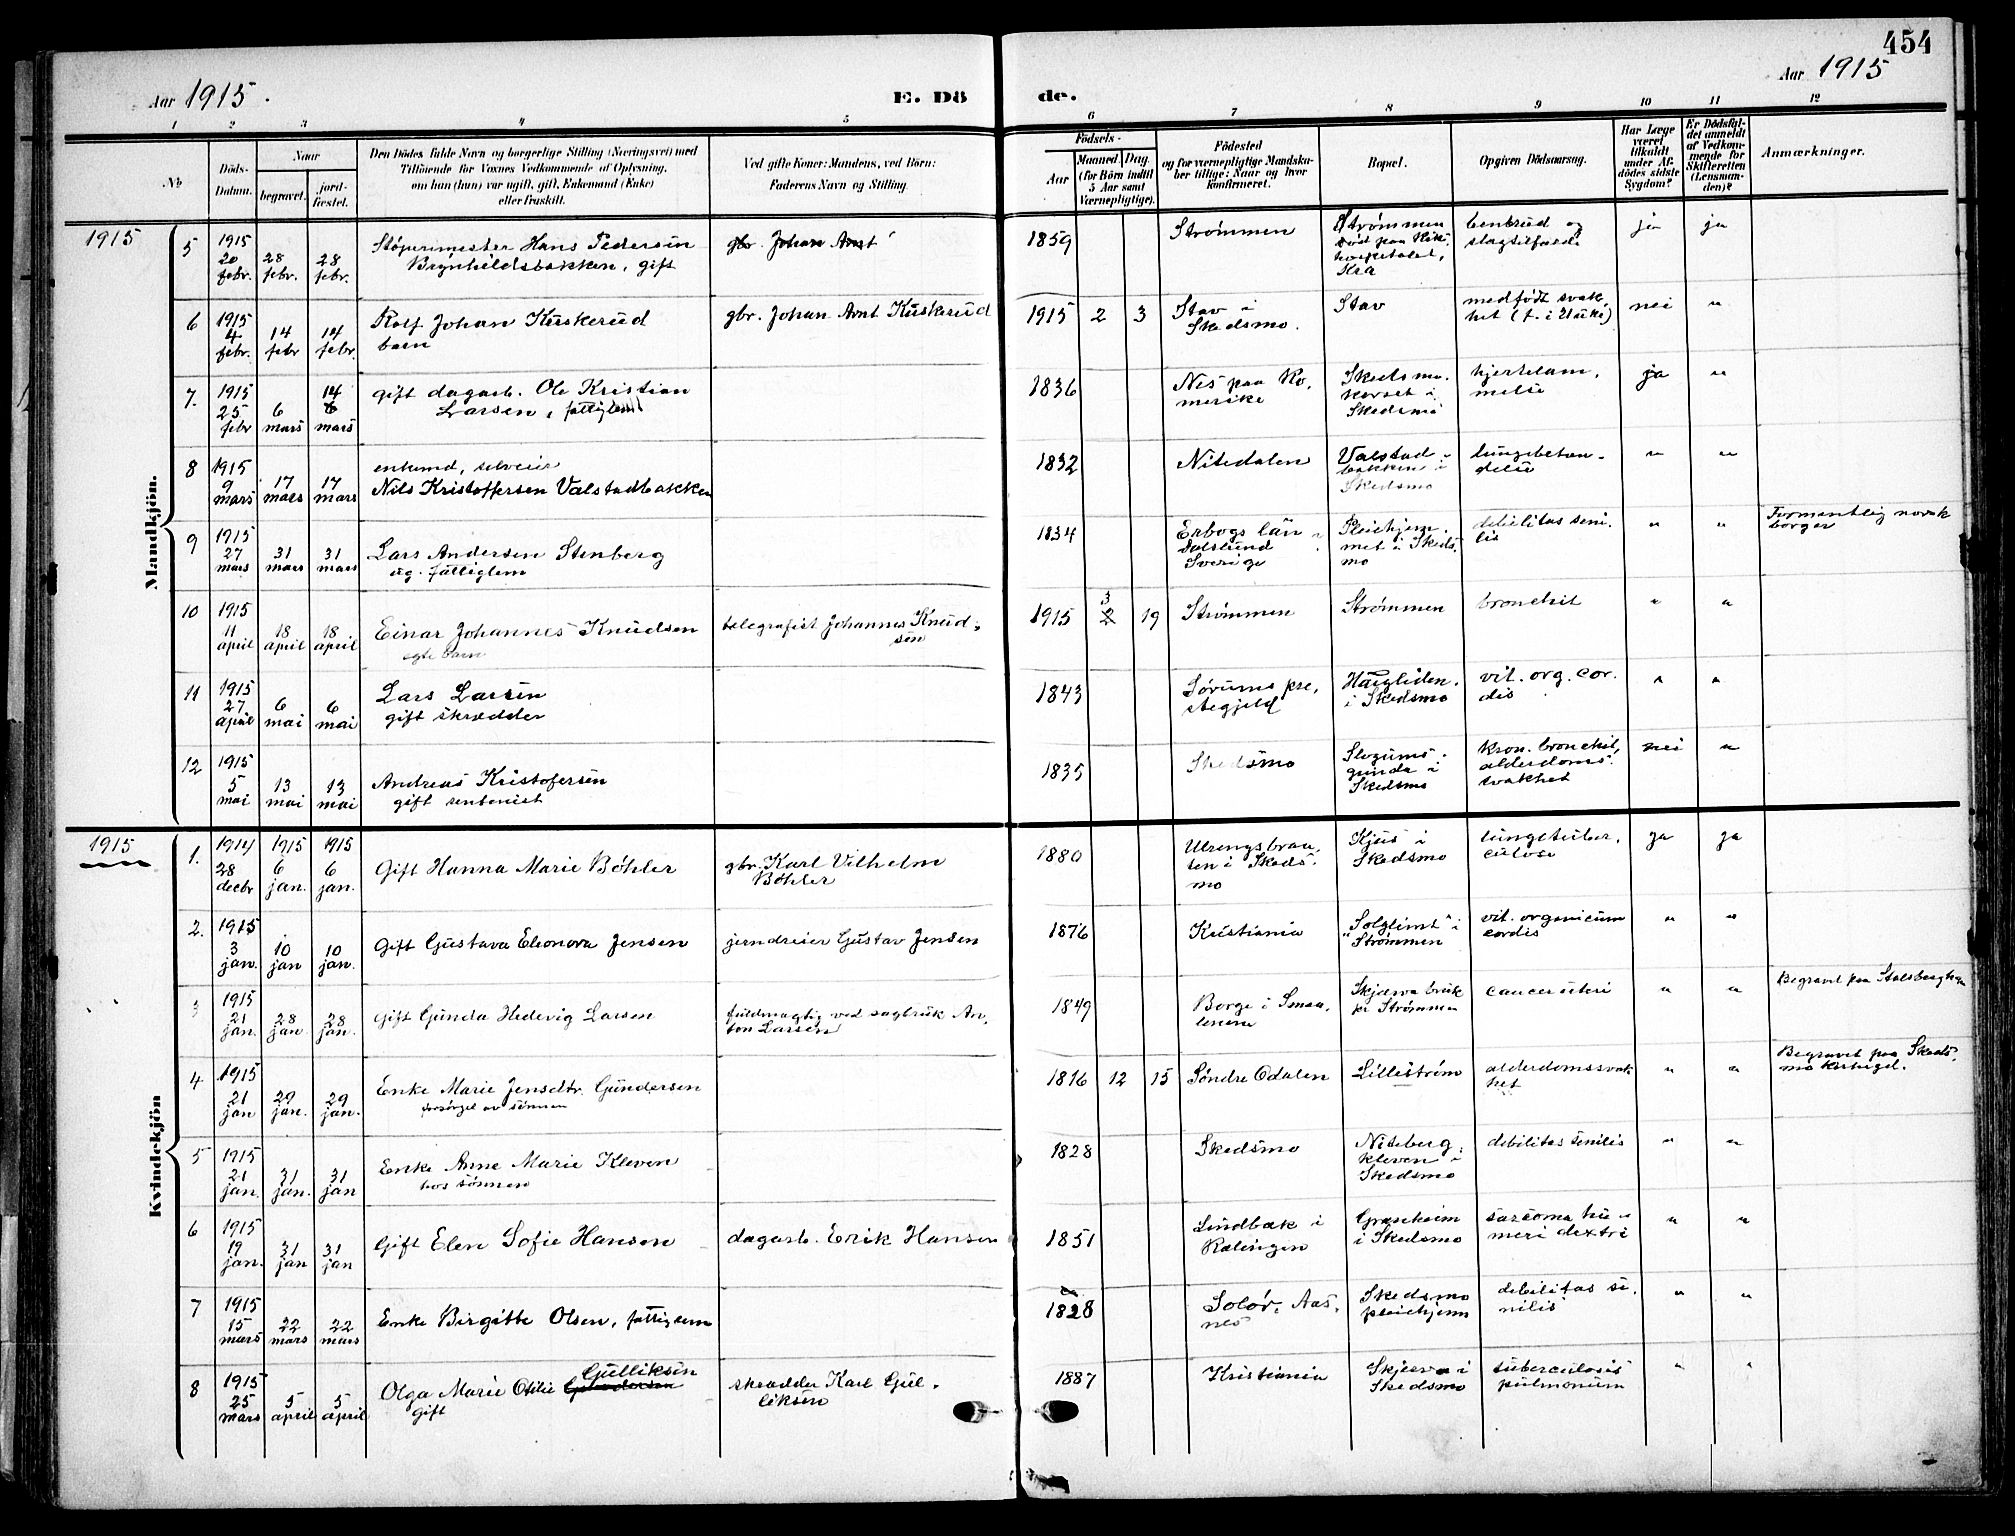 454
Aar 1915.
E. Dö
de.
Aar 1915
1 2 3 4 5 6 7 8 9 10 11 12
№
Döds-
Datum.
Naar
begravet.
jord-
fæstet.
Den Dödes fulde Navn og borgerlige Stilling (Næringsvei) med
Tilföiende for Voxnes Vedkommende af Oplysning,
om hun (hun) var ugift, gift, Enkemand (Enke)
eller fraskilt.
Ved gifte Koner: Mandens, ved Börn:
Faderens Navn og Stilling.
Födsels-
Aar
Maaned Dag.
(for Börn indtil
5 Aar samt
Værnepligtige).
Födested
og for værnepligtige Mandska-
ber tillige: Naar og hvor
konfirmeret.
Bopæl.
Opgiven Dödsaarsag.
Har Læge
været
tilkaldt
under Af-
dödes sidste
Sygdom?
Er Dödsfal-
det anmeldt
af Vedkom-
mende for
Skifteretten
(Lensman-
den)?
Anmærkninger.
Mandkjön.
1915
5
1915
20
febr.
28
febr.
28
febr.
Støperimester Hans Pedersen
Brynhildsbakken, gift
gbr. Johan Arnt
1859
Strømmen
Strømmen
død paa Riks-
hospitalet,
Kra
benbrud og
slagtilfælde
ja
ja
6
1915
4
febr.
14
febr
14
febr.
Rolf Johan Kuskerud
barn
gbr. Johan Arnt Kuskerud
1915 2 3
Stav i
Skedsmo.
Stav
medfødt svak
het (f. i Uuke)
nei
"
7.
1915
25
febr
6
mars
14
6
mars
gift dagarb. Ole Kristian
Larsen, fattiglem
1836
Nes paa Ro-
merike
Skedsmo-
korset i
Skedsmo
hjertelam-
melse
ja
"
8
1915
9
mars
17
mars
17
mars
enkemd, selveier
Nils Kristoffersen Valstadbakken
1832
Nitedalen
Valstad-
bakken i
Skedsmo
lungebetæn-
delse
"
"
9
1915
27
mars
31
mars
31
mars
Lars Andersen Stenberg
ug. fattiglem
1834
Erbogs län
Dalslund
Sverige
Pleiehjem-
met i Skeds-
mo
debilitas seni-
lis
"
"
Formentlig norsk
borger
10
1915
11
april
18
april
18
april
Einar Johannes Knudsen
egte barn
telegrafist Johannes Knud-
sen
1915
3
2
19
Strømmen
Strømmen
bronchit
"
"
11
1915
27
april
6
mai
6
mai
Lars Larsen
gift skrædder
1843
Sørums pre-
stegjeld
Haugliden
i Skedsmo
vit. org. cor-
dis
"
"
12
1915
5
mai
13
mai
13
mai
Andreas Kristofersen
gift
1835
Skedsmo
grinda i
Skedsmo
kron. bronchit,
alderdoms-
svakhet
nei
"
Kvindekjön
1915
1.
1914
28
decbr
1915
6
jan.
1915
6
jan.
Gift Hanna Marie Bøhler
gbr. Karl Vilhelm
Bøhler
1880
ten i Skeds-
mo
Kjus i
Skedsmo
lungetuber-
culose
ja
ja
2.
1915
3
jan.
10
jan
10
jan.
Gift Gustava Eleonora Jensen
jerndreier Gustav Jensen
1876
Kristiania
"Solglimt" i
Strømmen
vit. organicum
cordis
"
"
3
1915
21
jan.
28
jan.
28
jan.
Gift Gunda Hedevig Larsen
fuldmægtig ved sagbruk An-
ton Larsen
1849
Borge i Smaa-
lenene
Skjærva bruk
pr Strømmen
cancer uteri
"
"
Begravet paa Stalsberghagen
4
1915
21
jan
29
jan.
29
jan.
Enke Marie Jensdtr. Gundersen
forsørget av sønnen
1816 12 15
Søndre Odalen
Lillestrøm
alderdomssvak
het
"
"
Begravet paa Skeds-
mo kirkegd.
5
1915
21
jan.
31
jan.
31
jan
Enke Anne Marie Kleven
hos sønnen
1828
Skedsmo
Niteberg-
kleven i
Skedsmo
debilitas senilis
"
"
6
1915
19
jan.
31
jan
31
jan
Gift Elen Sofie Hansen
dagarb. Erik Hansen
1851
Lindbæk i
Rælingen
Granheim
i Skedsmo
sarcoma hu-
meri dextri
"
"
7
1915
15
mars
22
mars
22
mars
Enke Birgitte Olsen, fattiglem
1828
Solør, Aas-
nes
Skedsmo
pleiehjem
debilitas se-
nilis
"
"
8
1915
25
mars
5
april
5
april
Gulliksen
Olga Marie Otilie Gundersen
gift
skrædder Karl Gul-
liksen
1887
Kristiania
Skjærva i
Skedsmo
tuberculosis
pulmonum
"
"